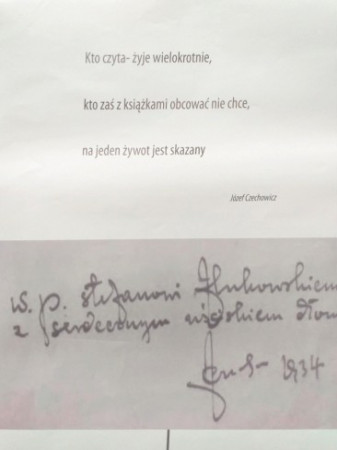 Kto czyta- żyje wielokrotnie,
kto zaś z książkami obcować nie chce,
na jeden żywot jest skazany
Józef Czechowicz
w. p. stefanowi
z serdecznym uściskiem dłoni
1934